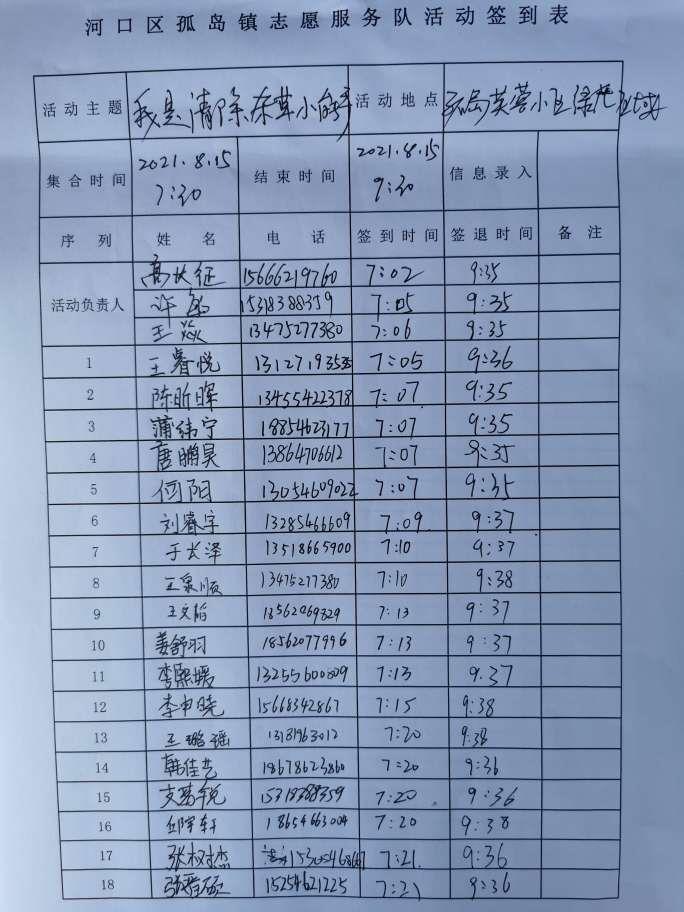 河口区孤岛镇志愿服务队活动签到表
活动主题 我是清除杂草小能手 活动地点 孤岛芙蓉小区绿化区域
集合时间 2021.8.15 7:30 结束时间 2021.8.15 9:30 信息录入
序列 姓名 电话 签到时间 签退时间 备注
活动负责人 高长征 15666219760 7:02 9:35
许敏 15318388359 7:05 9:35
王焱 13475277380 7:06 9:35
1 王睿悦 13127193535 7:05 9:36
2 陈昕晖 13455422378 7:07 9:35
3 蒲纬宁 18854623177 7:07 9:35
4 唐鹏昊 13864706612 7:07 9:35
5 何阳 13054609022 7:07 9:35
6 刘睿宇 13285466609 7:09 9:37
7 于长泽 13518665900 7:10 9:37
8 王泉顺 13475277380 7:10 9:38
9 王文韬 18562069829 7:13 9:37
10 姜舒羽 18562077996 7:13 9:37
11 李熙媛 13255600809 7:13 9:37
12 李申晓 15668342867 7:15 9:38
13 王璐瑶 13181963012 7:20 9:38
14 韩佳艺 18678623860 7:20 9:36
15 15318388359 7:20 9:36
16 邱宇轩 18654663004 7:20 9:38
17 张树杰 7:21 9:36
18 15254621225 7:21 9:36